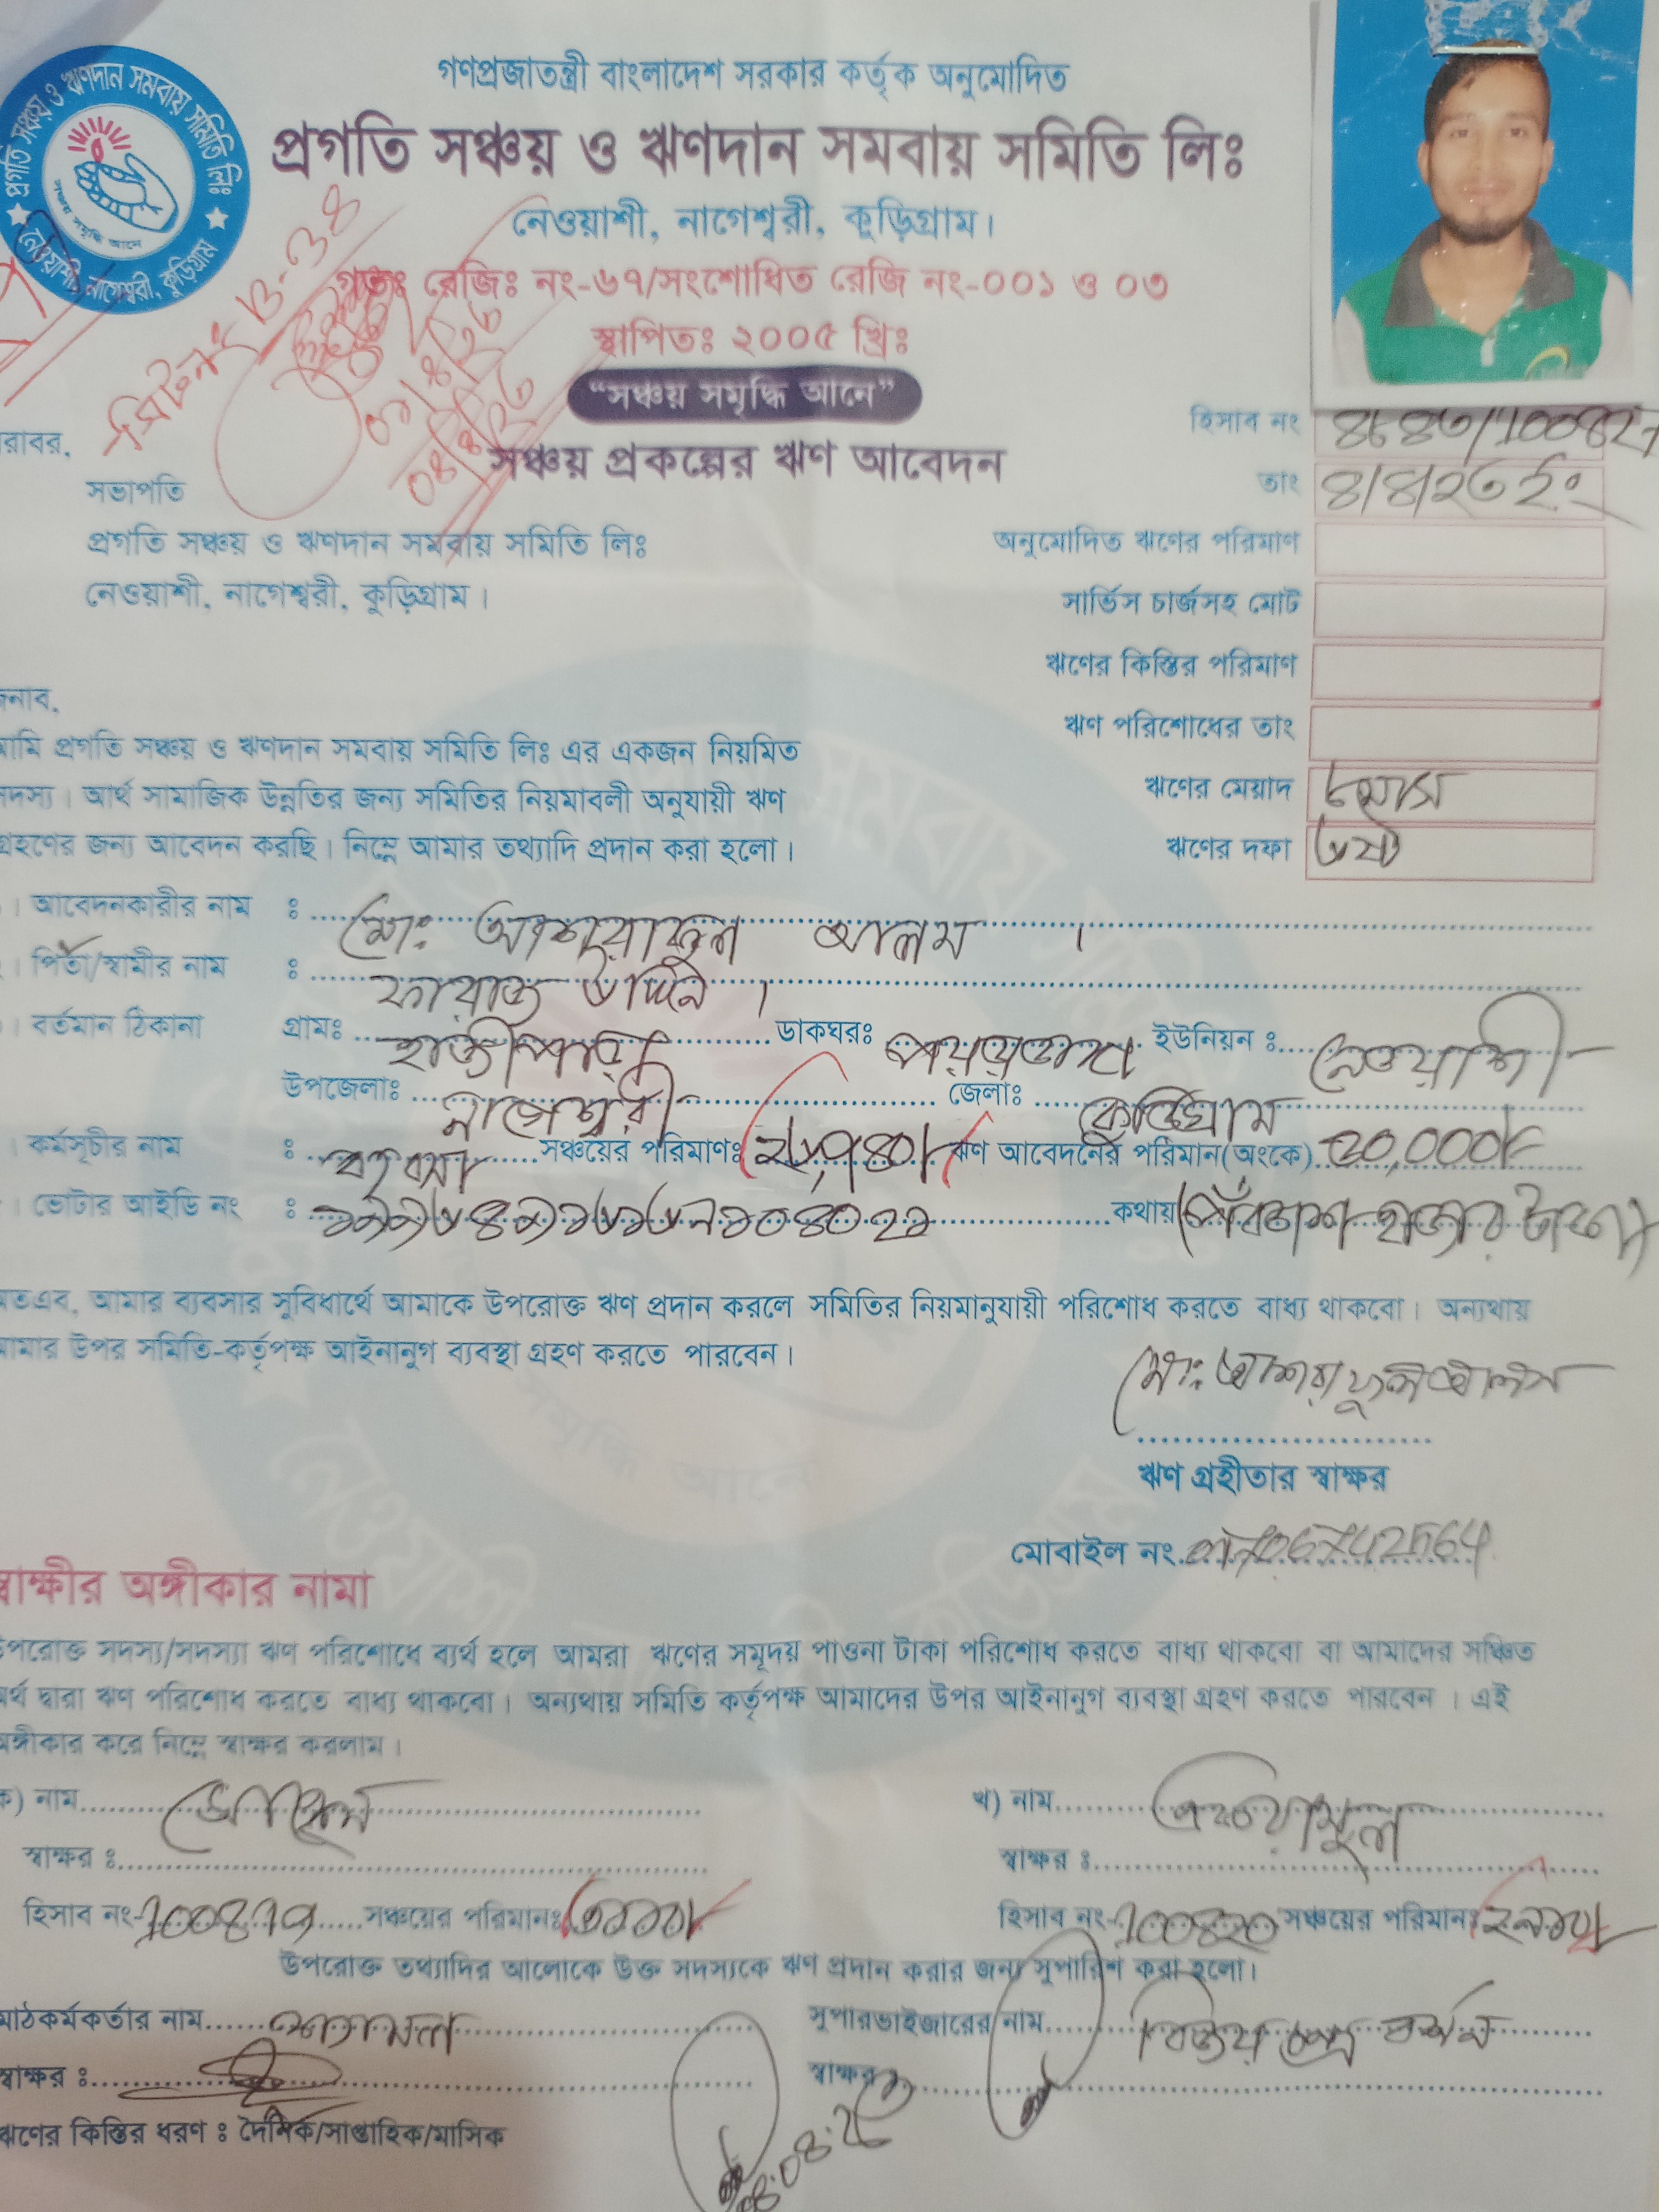 প্রগতি সঞ্চয় ও ঋণদান সমবায় সমিতি লিঃ
নেওয়াশী, নাগেশ্বরী, কুড়িগ্রাম
সঞ্চয় সমৃদ্ধি আনে
গণপ্রজাতন্ত্রী বাংলাদেশ সরকার কর্তৃক অনুমোদিত
প্রগতি সঞ্চয় ও ঋণদান সমবায় সমিতি লিঃ
নেওয়াশী, নাগেশ্বরী, কুড়িগ্রাম।
গভঃ রেজিঃ নং-৬৭/সংশোধিত রেজি নং-০০১ ও ০৩
স্থাপিতঃ ২০০৫ খ্রিঃ
“সঞ্চয় সমৃদ্ধি আনে”
সঞ্চয় প্রকল্পের ঋণ আবেদন
হিসাব নং
তাং ৪/৪/২৩ ইং
রাবর,
সভাপতি
প্রগতি সঞ্চয় ও ঋণদান সমবায় সমিতি লিঃ
নেওয়াশী, নাগেশ্বরী, কুড়িগ্রাম।
অনুমোদিত ঋণের পরিমাণ
সার্ভিস চার্জসহ মোট
ঋণের কিস্তির পরিমাণ
ঋণ পরিশোধের তাং
ঋণের মেয়াদ মাস
ঋণের দফা ৩য়
নাব,
মি প্রগতি সঞ্চয় ও ঋণদান সমবায় সমিতি লিঃ এর একজন নিয়মিত
দস্য। আর্থ সামাজিক উন্নতির জন্য সমিতির নিয়মাবলী অনুযায়ী ঋণ
গ্রহণের জন্য আবেদন করছি। নিম্নে আমার তথ্যাদি প্রদান করা হলো।
। আবেদনকারীর নাম ঃ মোঃ আশরাফুল আলম ।
। পিতা/স্বামীর নাম ঃ উদ্দিন ।
। বর্তমান ঠিকানা গ্রামঃ হাজীপাড়া ডাকঘরঃ পয়রাডাঙ্গা ইউনিয়ন ঃ নেওয়াশী
উপজেলাঃ নাগেশ্বরী জেলাঃ কুড়িগ্রাম
। কর্মসূচীর নাম ঃ সঞ্চয়ের পরিমাণঃ ঋণ আবেদনের পরিমান(অংকে) ৫০,০০০/-
। ভোটার আইডি নং ঃ কথায় (পঁঞ্চাশ হাজার টাকা)
তএব, আমার ব্যবসার সুবিধার্থে আমাকে উপরোক্ত ঋণ প্রদান করলে সমিতির নিয়মানুযায়ী পরিশোধ করতে বাধ্য থাকবো। অন্যথায়
মার উপর সমিতি-কর্তৃপক্ষ আইনানুগ ব্যবস্থা গ্রহণ করতে পারবেন।
মোঃ আশরাফুল আলম
ঋণ গ্রহীতার স্বাক্ষর
মোবাইল নং 01706742564
স্বাক্ষীর অঙ্গীকার নামা
উপরোক্ত সদস্য/সদস্যা ঋণ পরিশোধে ব্যর্থ হলে আমরা ঋণের সমূদয় পাওনা টাকা পরিশোধ করতে বাধ্য থাকবো বা আমাদের সঞ্চিত
র্থ দ্বারা ঋণ পরিশোধ করতে বাধ্য থাকবো। অন্যথায় সমিতি কর্তৃপক্ষ আমাদের উপর আইনানুগ ব্যবস্থা গ্রহণ করতে পারবেন । এই
ঙ্গীকার করে নিম্নে স্বাক্ষর করলাম।
ক) নাম
খ) নাম
স্বাক্ষর ঃ
স্বাক্ষর ঃ
হিসাব নং- সঞ্চয়ের পরিমানঃ
হিসাব নং- 100820 সঞ্চয়ের পরিমানঃ
উপরোক্ত তথ্যাদির আলোকে উক্ত সদস্যকে ঋণ প্রদান করার জন্য সুপারিশ করা হলো।
মাঠকর্মকর্তার নাম
সুপারভাইজারের নাম বিজয় চন্দ্র বর্মন
স্বাক্ষর ঃ
স্বাক্ষর
ঋণের কিস্তির ধরণ ঃ দৈনিক/সাপ্তাহিক/মাসিক